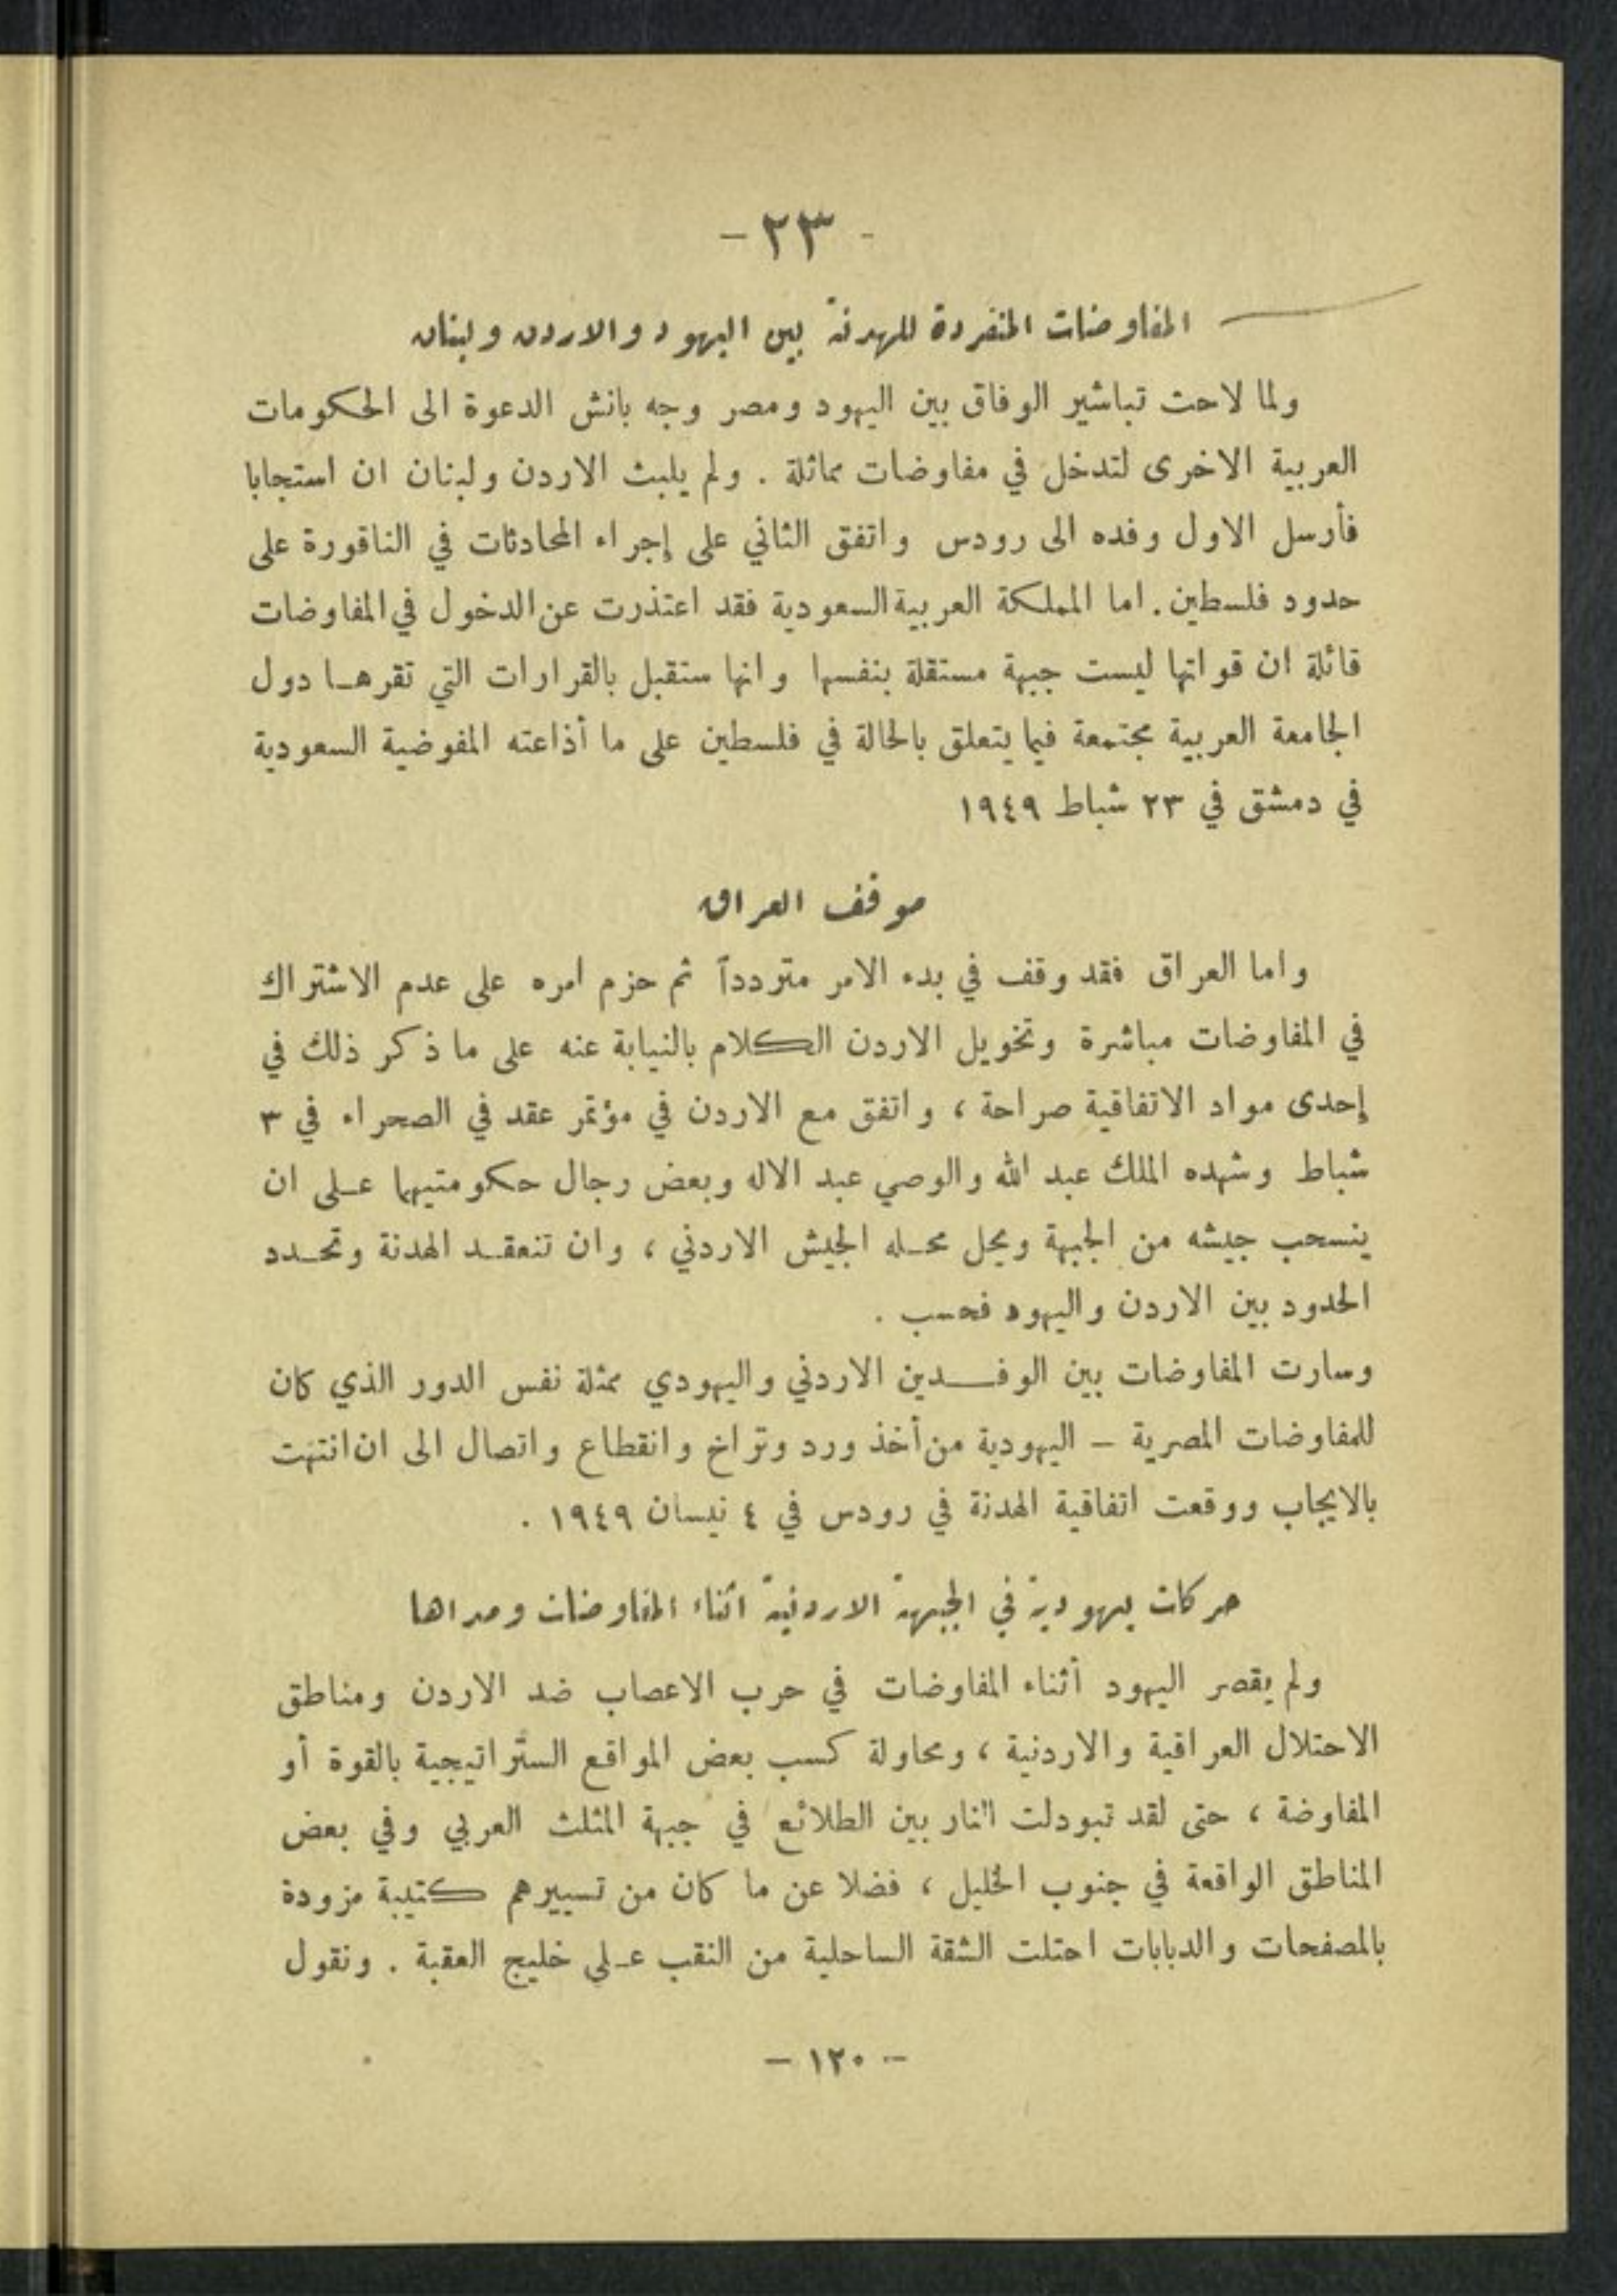 - ٢٣ -
المفاوضات المنفردة للهدنة بين اليهود والاردن ولبنان
ولما لاحت تباشير الوفاق بين اليهود ومصر وجه بانش الدعوة الى الحكومات
العربية الاخرى لتدخل في مفاوضات مماثلة . ولم يلبث الاردن ولبنان ان استجابا
فأرسل الاول وفده الى رودس واتفق الثاني على إجراء المحادثات في الناقورة على
حدود فلسطين . اما المملكة العربية السعودية فقد اعتذرت عن الدخول في المفاوضات
قائلة ان قواتها ليست جبهة مستقلة بنفسها وانها ستقبل بالقرارات التي تقرهـا دول
الجامعة العربية مجتمعة فيما يتعلق بالحالة في فلسطين على ما أذاعته المفوضية السعودية
في دمشق في ٢٣ شباط ١٩٤٩
موقف العراق
واما العراق فقد وقف في بدء الامر متردداً ثم حزم امره على عدم الاشتراك
في المفاوضات مباشرة وتخويل الاردن الكلام بالنيابة عنه على ما ذكر ذلك في
إحدى مواد الاتفاقية صراحة ، واتفق مع الاردن في مؤتمر عقد في الصحراء في ٣
شباط وشهده الملك عبد الله والوصي عبد الاله وبعض رجال حكومتيهما عـلى ان
ينسحب جيشه من الجبهة ويحل محـله الجيش الاردني ، وان تنعقـد الهدنة وتحـدد
الحدود بين الاردن واليهود فحسب .
وسارت المفاوضات بين الوفـــدين الاردني واليهودي ممثلة نفس الدور الذي كان
للمفاوضات المصرية – اليهودية من أخذ ورد وتراخ وانقطاع واتصال الى ان انتهت
بالايجاب ووقعت اتفاقية الهدنة في رودس في ٤ نيسان ١٩٤٩ .
حركات يهودية في الجبهة الاردنية اثناء المفاوضات ومداها
ولم يقصر اليهود أثناء المفاوضات في حرب الاعصاب ضد الاردن ومناطق
الاحتلال العراقية والاردنية ، ومحاولة كسب بعض المواقع الستراتيجية بالقوة أو
المفاوضة ، حتى لقد تبودلت النار بين الطلائع في جبهة المثلث العربي وفي بعض
المناطق الواقعة في جنوب الخليل ، فضلا عن ما كان من تسييرهم كتيبة مزودة
بالمصفحات والدبابات احتلت الشقة الساحلية من النقب عـلى خليج العقبة . ونقول
- ١٢٠ -